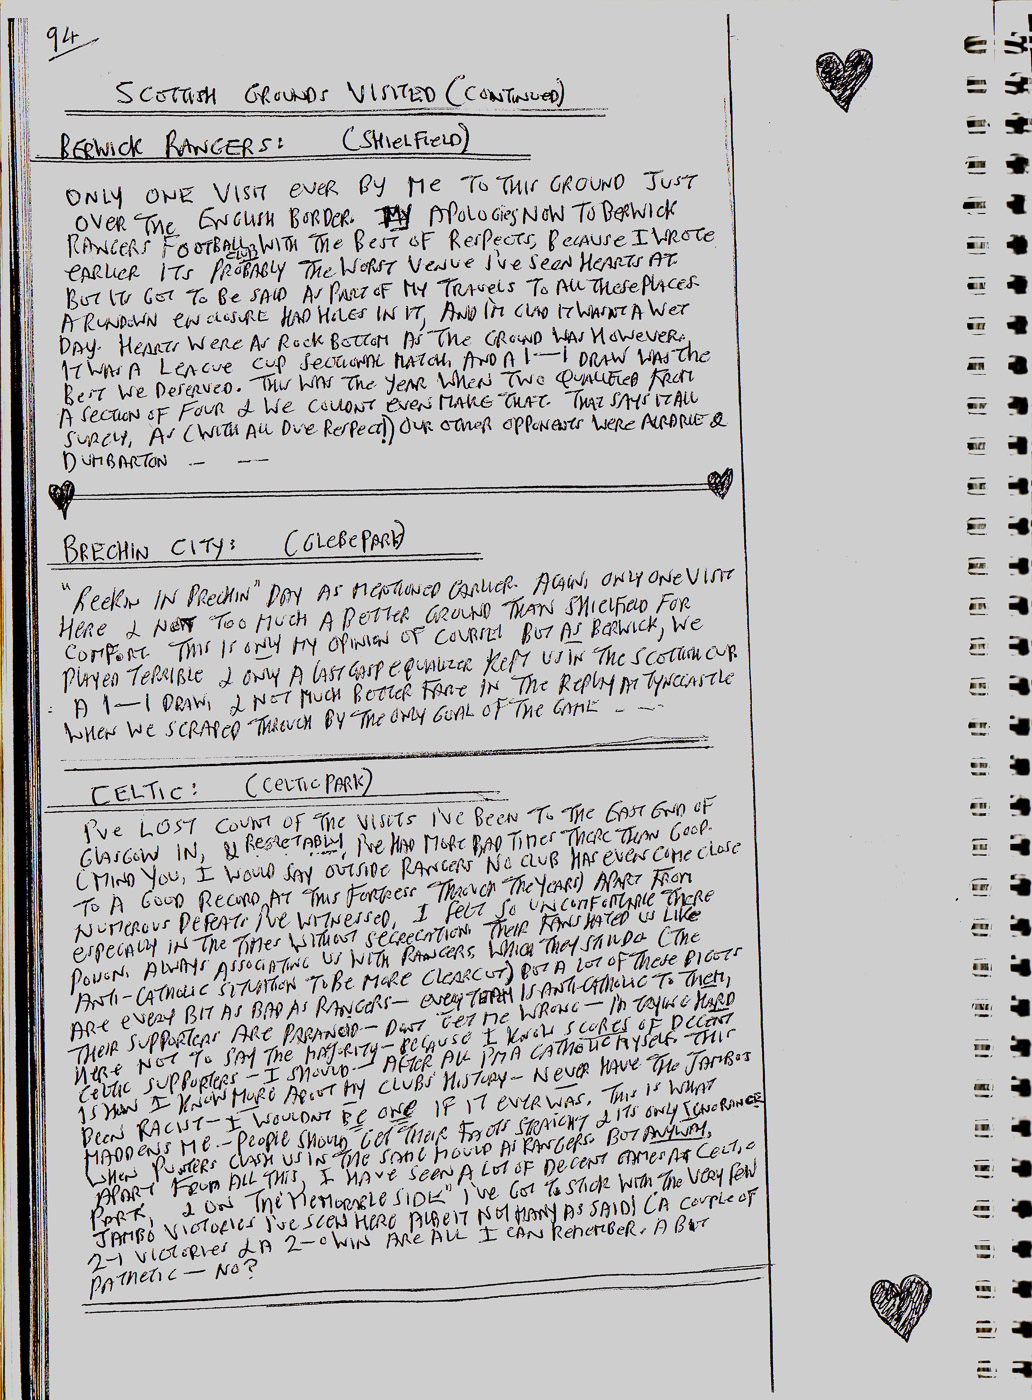 94
SCOTTISH GROUNDS VISITED (CONTINUED)
BERWICK RANGERS: (SHIELFIELD)
ONLY ONE VISIT EVER BY ME TO THIS GROUND JUST
OVER THE ENGLISH BORDER. MY APOLOGIES NOW TO BERWICK
RANGERS FOOTBALL CLUB WITH THE BEST OF RESPECTS, BECAUSE I WROTE
EARLIER ITS PROBABLY THE WORST VENUE I'VE SEEN HEARTS AT
BUT ITS GOT TO BE SAID AS PART OF MY TRAVELS TO ALL THESE PLACES
A RUNDOWN ENCLOSURE HAD HOLES IN IT, AND I'M GLAD IT WASNT A WET
DAY. HEARTS WERE AS ROCK BOTTOM AS THE GROUND WAS HOWEVER.
IT WAS A LEAGUE CUP SECTIONAL MATCH, AND A 1-1 DRAW WAS THE
BEST WE DESERVED. THIS WAS THE YEAR WHEN TWO QUALIFIED FROM
A SECTION OF FOUR & WE COULDNT EVEN MAKE THAT. THAT SAYS IT ALL
SURELY, AS (WITH ALL DUE RESPECT!) OUR OTHER OPPONENTS WERE AIRDRIE &
DUMBARTON — —
BRECHIN CITY: (GLEBE PARK)
"REEKIN IN BRECHIN" DAY AS MENTIONED EARLIER. AGAIN, ONLY ONE VISIT
HERE & NOT TOO MUCH A BETTER GROUND THAN SHIELFIELD FOR
COMFORT. THIS IS ONLY MY OPINION OF COURSE! BUT AS BERWICK, WE
PLAYED TERRIBLE & ONLY A LAST GASP EQUALIZER KEPT US IN THE SCOTTISH CUP.
A 1-1 DRAW, & NOT MUCH BETTER FARE IN THE REPLAY AT TYNECASTLE
WHEN WE SCRAPED THROUGH BY THE ONLY GOAL OF THE GAME — —
CELTIC: (CELTIC PARK)
I'VE LOST COUNT OF THE VISITS I'VE BEEN TO THE EAST END OF
GLASGOW IN, & REGRETABLY, I'VE HAD MORE BAD TIMES THERE THAN GOOD.
(MIND YOU, I WOULD SAY OUTSIDE RANGERS NO CLUB HAS EVER COME CLOSE
TO A GOOD RECORD AT THIS FORTRESS THROUGH THE YEARS) APART FROM
NUMEROUS DEFEATS I'VE WITNESSED, I FELT SO UNCOMFORTABLE THERE
ESPECIALLY IN THE TIMES WITHOUT SEGREGATION. THEIR FANS HATED US LIKE
POISON. ALWAYS ASSOCIATING US WITH RANGERS, WHICH THEY STILL DO (THE
ANTI-CATHOLIC SITUATION TO BE MORE CLEARCUT) BUT A LOT OF THESE BIGOTS
ARE EVERY BIT AS BAD AS RANGERS — EVERY TEAM IS ANTI-CATHOLIC TO THEM,
THEIR SUPPORTERS ARE PARANOID — DONT GET ME WRONG — I'M TRYING HARD
HERE NOT TO SAY THE MAJORITY — BECAUSE I KNOW SCORES OF DECENT
CELTIC SUPPORTERS — I SHOULD — AFTER ALL I'M A CATHOLIC MYSELF. THIS
IS HOW I KNOW MORE ABOUT MY CLUBS HISTORY — NEVER HAVE THE JAMBOS
BEEN RACIST — I WOULDNT BE ONE IF IT EVER WAS. THIS IS WHAT
MADDENS ME — PEOPLE SHOULD GET THEIR FACTS STRAIGHT & ITS ONLY IGNORANCE
WHEN PUNTERS CLASH US IN THE SAME MOULD AS RANGERS. BUT ANYWAY,
APART FROM ALL THIS, I HAVE SEEN A LOT OF DECENT GAMES AT CELTIC
PARK, & ON THE "MEMORABLE SIDE" I'VE GOT TO STICK WITH THE VERY FEW
JAMBO VICTORIES I'VE SEEN HERE ALBEIT NOT MANY AS SAID! (A COUPLE OF
2-1 VICTORIES & A 2-0 WIN ARE ALL I CAN REMEMBER. A BIT
PATHETIC — NO?